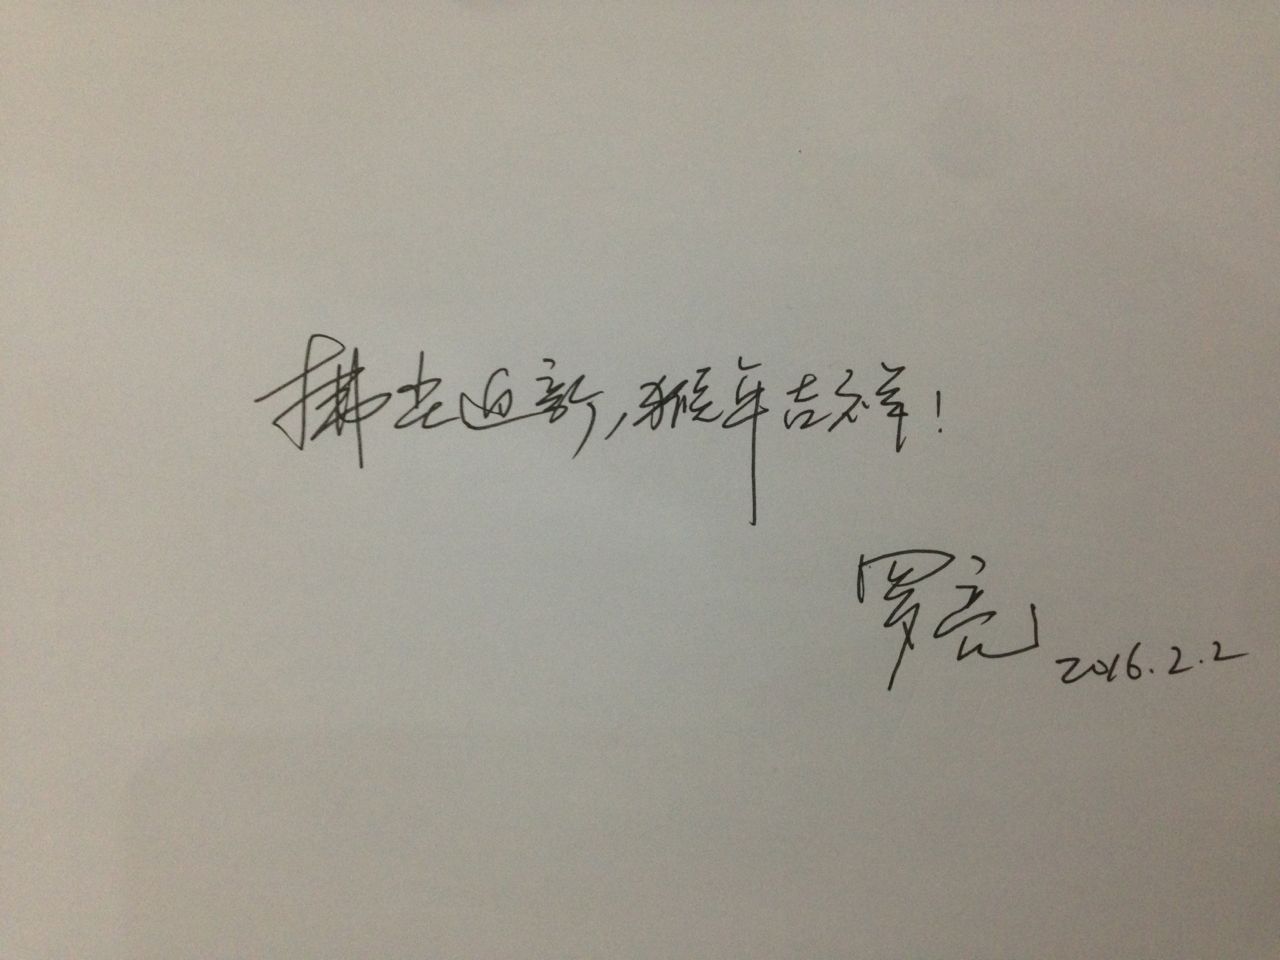 拂尘迎新，猴年吉祥！
罗亮 2016.2.2